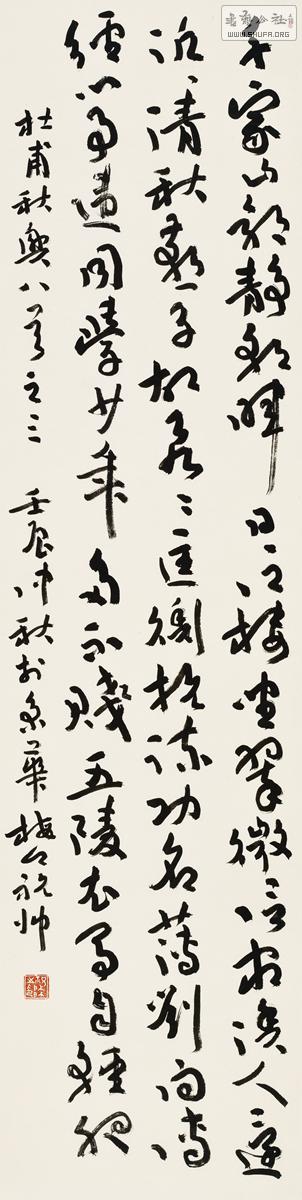 千家山郭靜朝暉日江樓坐翠微信宿漁人還
泛〻清秋燕子故飛〻匡衡抗疏功名薄劉向傳
經心事違同學少年多不賤五陵衣馬自輕肥
杜甫秋興八首之三 壬辰仲秋於京華 祝帅
WWW.SHUFA.ORG